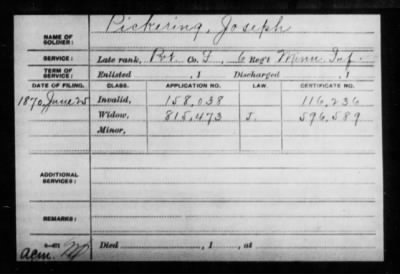 Pickering, Joseph
NAME OF SOLDIER:
SERVICE: Late rank, Pvt. Co. I, 6 Regt Minn Inf.
TERM OF SERVICE: Enlisted , 1 Discharged , 1
DATE OF FILING. CLASS. APPLICATION NO. LAW. CERTIFICATE NO.
1870 June 25 Invalid, 158,038 116,236
Widow, 815,473 J. 596,589
Minor,
ADDITIONAL SERVICES:
REMARKS:
Died , 1 , at
acm.